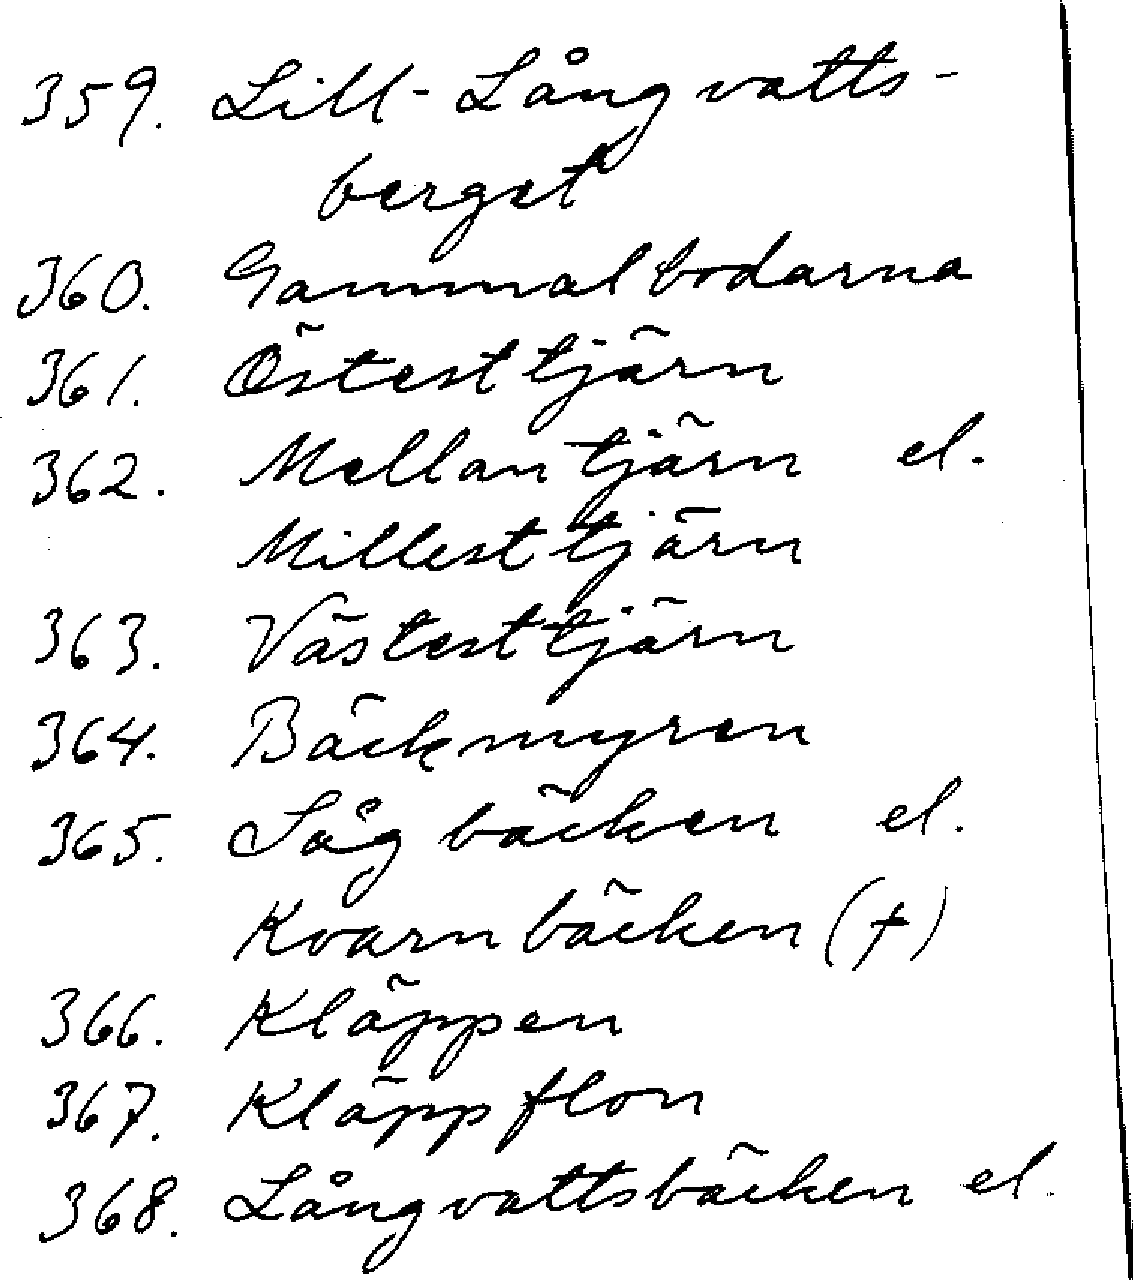 359. Lill-Långvatts-
berget
360. Gammalbodarna
361. Östesttjärn
362. Mellantjärn el.
Millesttjärn
363. Västesttjärn
364. Bäckmyren
365. Sågbäcken el.
Kvarnbäcken (†)
366. Kläppen
367. Kläppflon
368. Långvattsbäcken el.